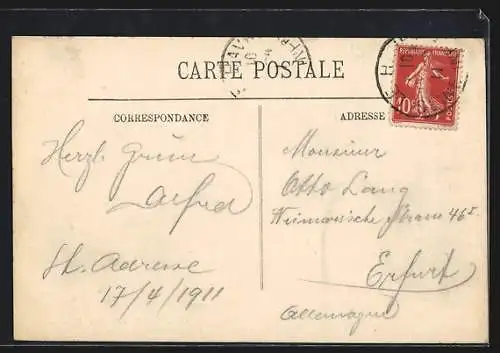 CARTE POSTALE
CORRESPONDANCE
ADRESSE
REPUBLIQUE FRANÇAISE
10c
POSTES
Herzl. Gruss
Alfred
St. Adresse
17/4/1911
Monsieur
Otto Lang
Weimarische Strasse 46 I
Erfurt
Allemagne